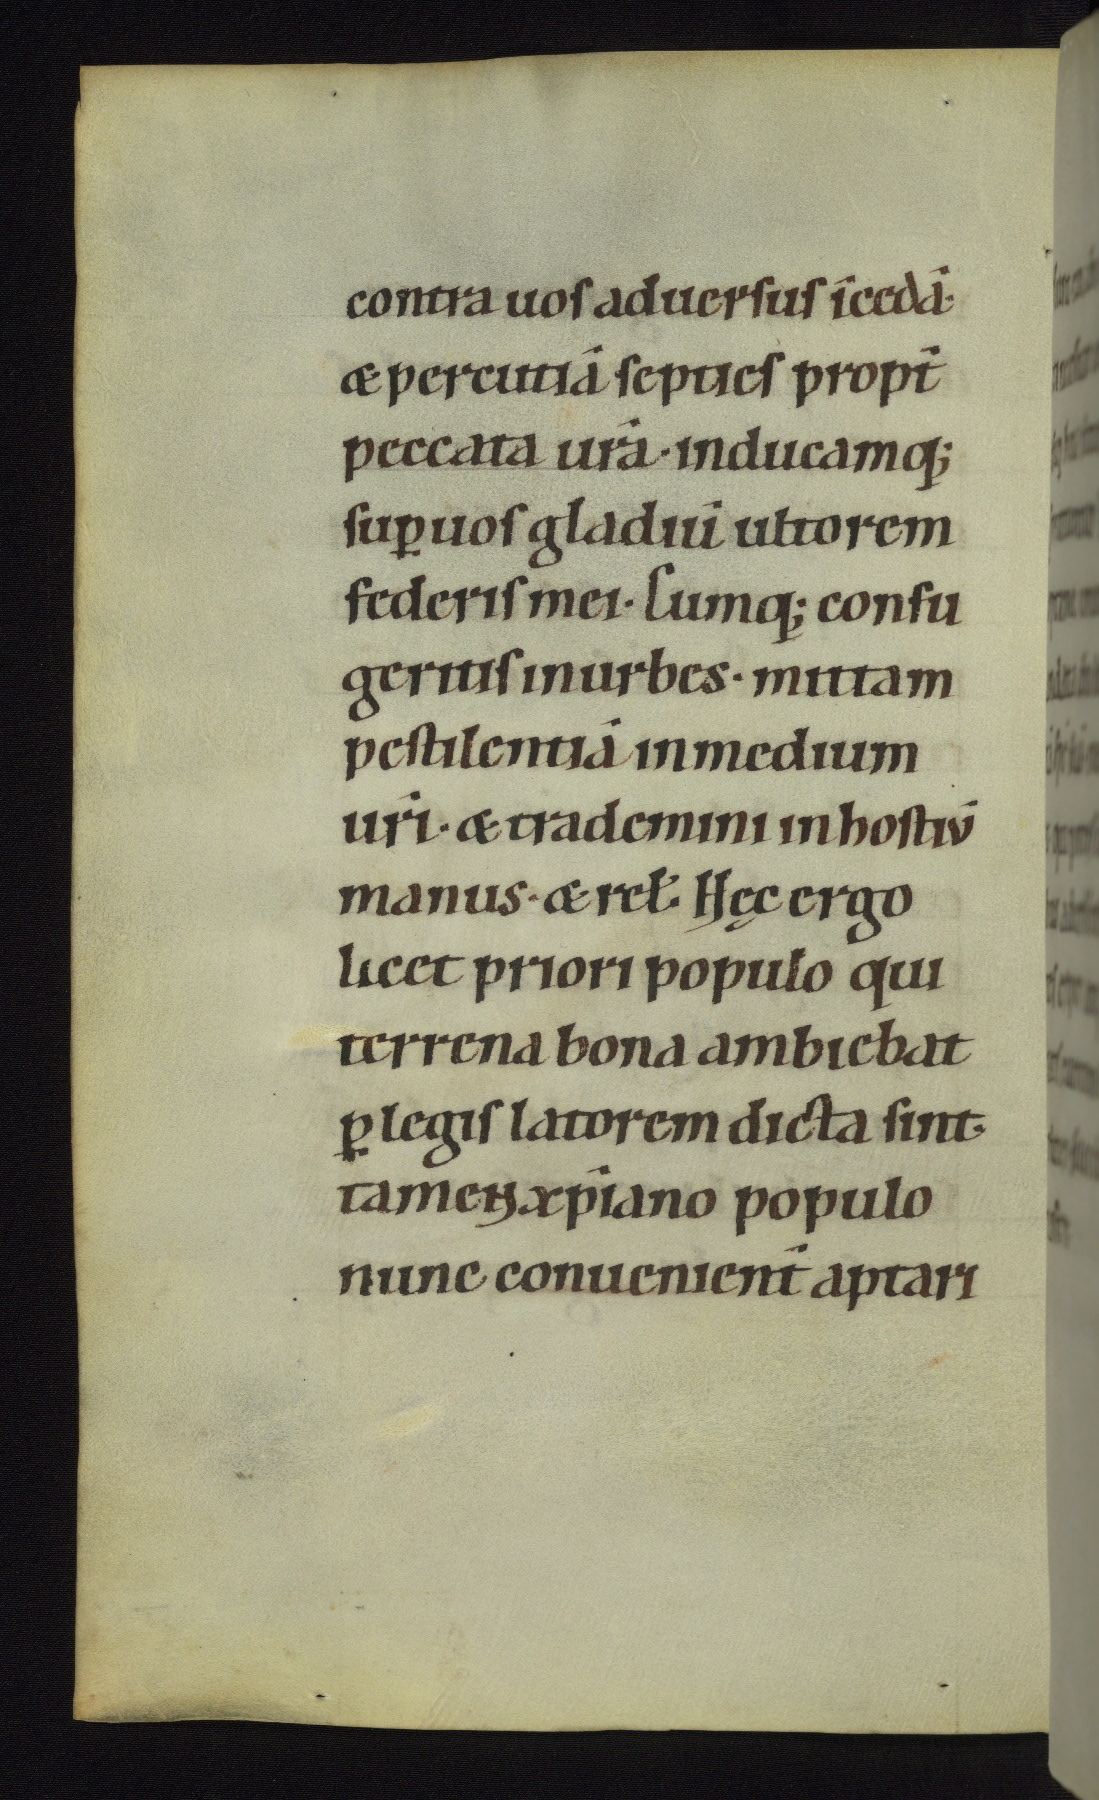 contra uos aduersus īcedā·
& percutiā septies propt̄
peccata ur̄a· inducamq;
suꝑ uos gladiū ultorem
federis mei· Cumq; confu
geritis in urbes· mittam
pestilentiā in medium
ur̄i· & trademini in hostiū
manus· & rel̄· Hęc ergo
licet priori populo qui
terrena bona ambiebat
ꝑ legis latorem dicta sint·
tamen xp̄iano populo
nunc conuenient̄ aptari